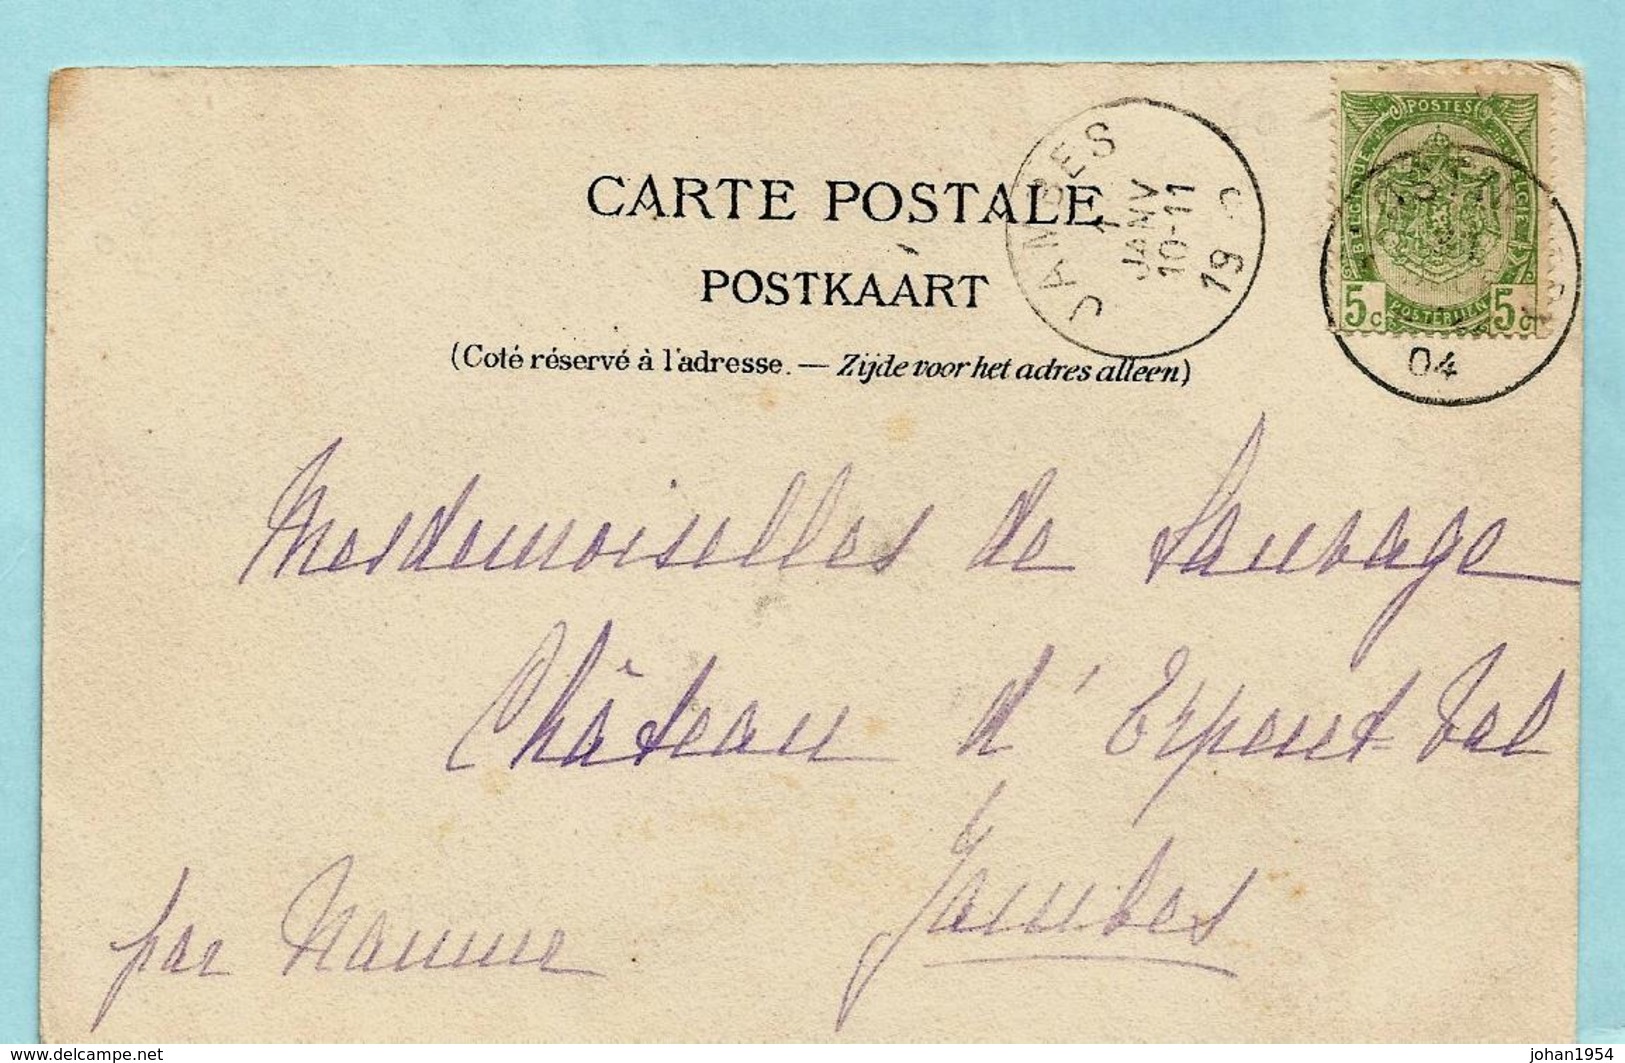 CARTE POSTALE
POSTKAART
(Coté réservé à l'adresse. — Zijde voor het adres alleen)
JAMBES
1
JANV
10-11
19
POSTES
BELGIQUE
BELGIE
5c POSTERIJEN 5c
04
Mesdemoiselles de Sauvage
Château d'Erpent-Val
Jambes
par Namur
www.delcampe.net
johan1954